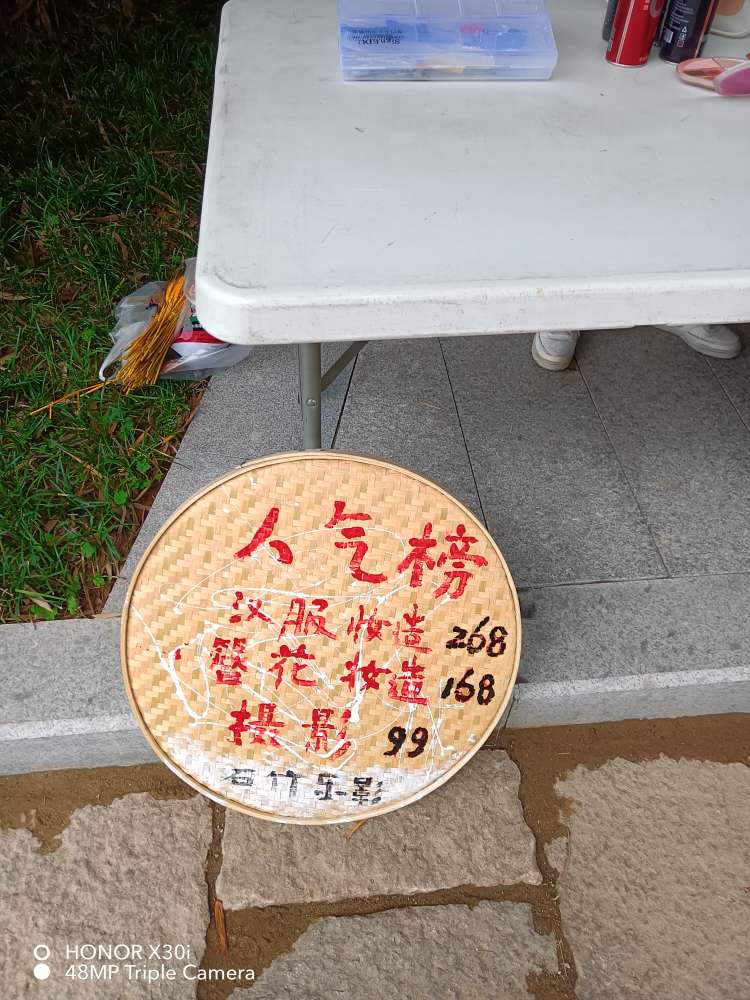 人气榜
汉服妆造 268
簪花妆造 168
摄影 99
石竹乐影
HONOR X30i
48MP Triple Camera